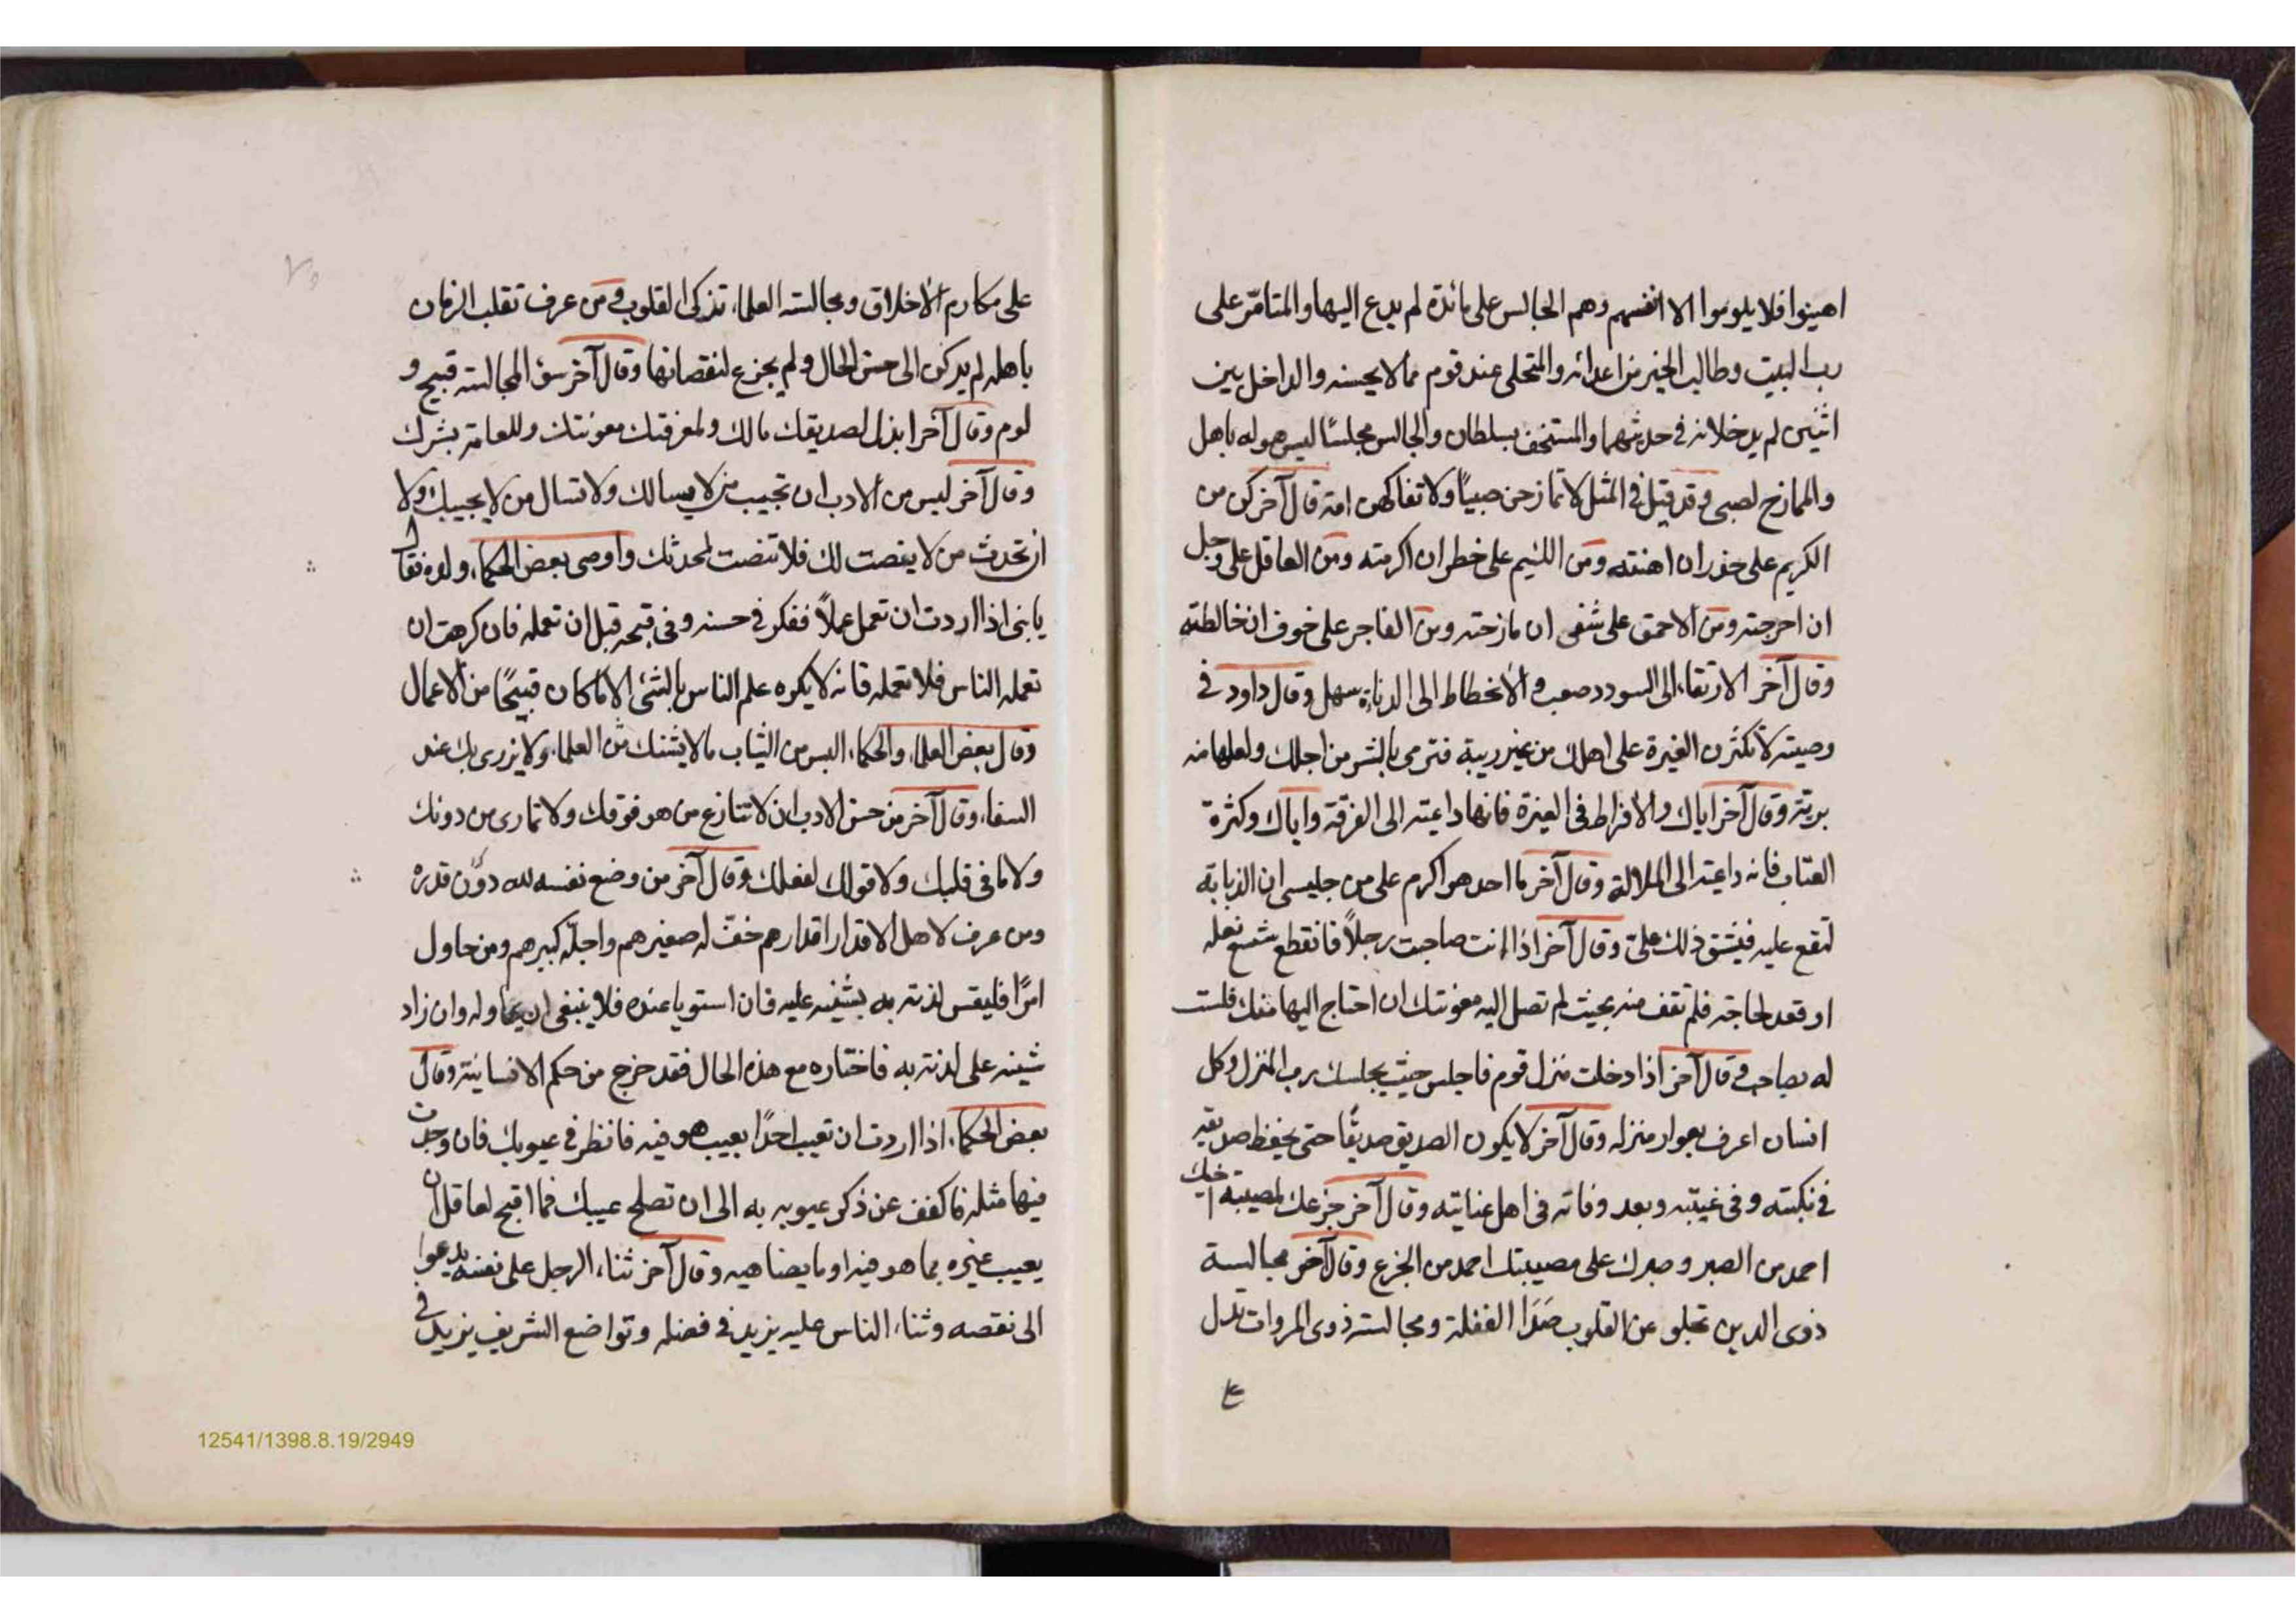 اهينوا فلا يلوموا الا انفسهم وهم الجالس على مائدة لم يدع اليها والمتامّر على
رب البيت وطالب الخير من اعدائه والمتحلى عند قوم مما لا يحسنه والداخل بين
اثنين لم يدخلانه في حديثهما والمستخف بسلطان والجالس مجلسًا ليس هو له باهل
والممازح لصبى وقد قيل في المثل لا تمازحن صبيًا ولا تفاكهن امة قال آخر كن من
الكريم على حذر ان اهنته ومن اللئيم على خطر ان اكرمته ومن العاقل على وجل
ان احرجته ومن الاحمق على شفى ان مازحته ومن الفاجر على خوف ان خالطته
وقال آخر الارتقاء الى السودد صعب والانحطاط الى الدناءة سهل وقال داود في
وصيته لا تكثرن الغيرة على اهلك من غير ريبة فترمى بالشر من اجلك ولعلها منه
بريّة وقال آخر اياك والافراط فى الغيرة فانها داعية الى الفرقة واياك وكثرة
العتاب فانه داعية الى الملالة وقال آخر ما احد هو اكرم على من جليسى ان الذبابة
لتقع عليه فيشق ذلك علىّ وقال آخر اذا انت صاحبت رجلاً فانقطع شسع نعله
او قعد لحاجة فلم تقف منه بحيث لم تصل اليه معونتك ان احتاج اليها منك فلست
له بصاحب وقال آخر اذا دخلت منزل قوم فاجلس حيث يجلسك رب المنزل وكل
انسان اعرف بعوار منزله وقال آخر لا يكون الصديق صديقًا حتى يحفظ صديقه
في نكبته وفى غيبته وبعد وفاته فى اهل عنايته وقال آخر جزعك لمصيبة اخيك
احمد من الصبر وصبرك على مصيبتك احمد من الجزع وقال آخر مجالسة
ذوى الدين تجلو عن القلوب صَدَا الغفلة ومجالسة ذوى المروات تدل
على مكارم الاخلاق ومجالسة العلماء تذكى القلوب ومن عرف تقلب الزمان
باهله لم يركن الى حسن الحال ولم يجزع لنقصانها وقال آخر سؤ المجالسة قبيح و
لوم وقال آخر ابذل لصديقك مالك ولمعرفتك معونتك وللعامة بشرك
وقال آخر ليس من الادب ان تجيب من لا يسالك ولا تسال من لا يجيبك ولا
ان تحدث من لا ينصت لك فلا تنصت لمحدثك واوصى بعض الحكماء ولده فقال
يا بنى اذا اردت ان تعمل عملاً ففكر في حسنه وفى قبحه قبل ان تعمله فان كرهت ان
تعمله الناس فلا تعمله فانه لا يكره علم الناس بالشئ الا ما كان قبيحًا من الاعمال
وقال بعض العلماء والحكماء البس من الثياب ما لا يشنك من العلماء ولا يزرى بك عند
السفهاء وقال آخر من حسن الادب ان لا تنازع من هو فوقك ولا تمارى من دونك
ولا ما فى قلبك ولا قولك لفعلك وقال آخر من وضع نفسه لله دون قدره
ومن عرف لاهل الاقدار اقدارهم خفّ له صغيرهم واجلّه كبيرهم ومن حاول
امرًا فليقس لذته به بشينه عليه فان استويا عنده فلا ينبغى ان يحاوله وان زاد
شينه على لذته به فاختاره مع هذه الحال فقد خرج من حكم الانسانية وقال
بعض الحكماء اذا اردت ان تعيب احدًا بعيب هو فيه فانظر في عيوبك فان وجدت
فيها مثله فاكفف عن ذكر عيوبه به الى ان تصلح عيبك فما اقبح لعاقل ان
يعيب غيره بما هو فيه او ما يضاهيه وقال آخر ثناء الرجل على نفسه يدعوا
الى نقصه وثناء الناس عليه يزيد في فضله وتواضع الشريف يزيد في
12541/1398.8.19/2949